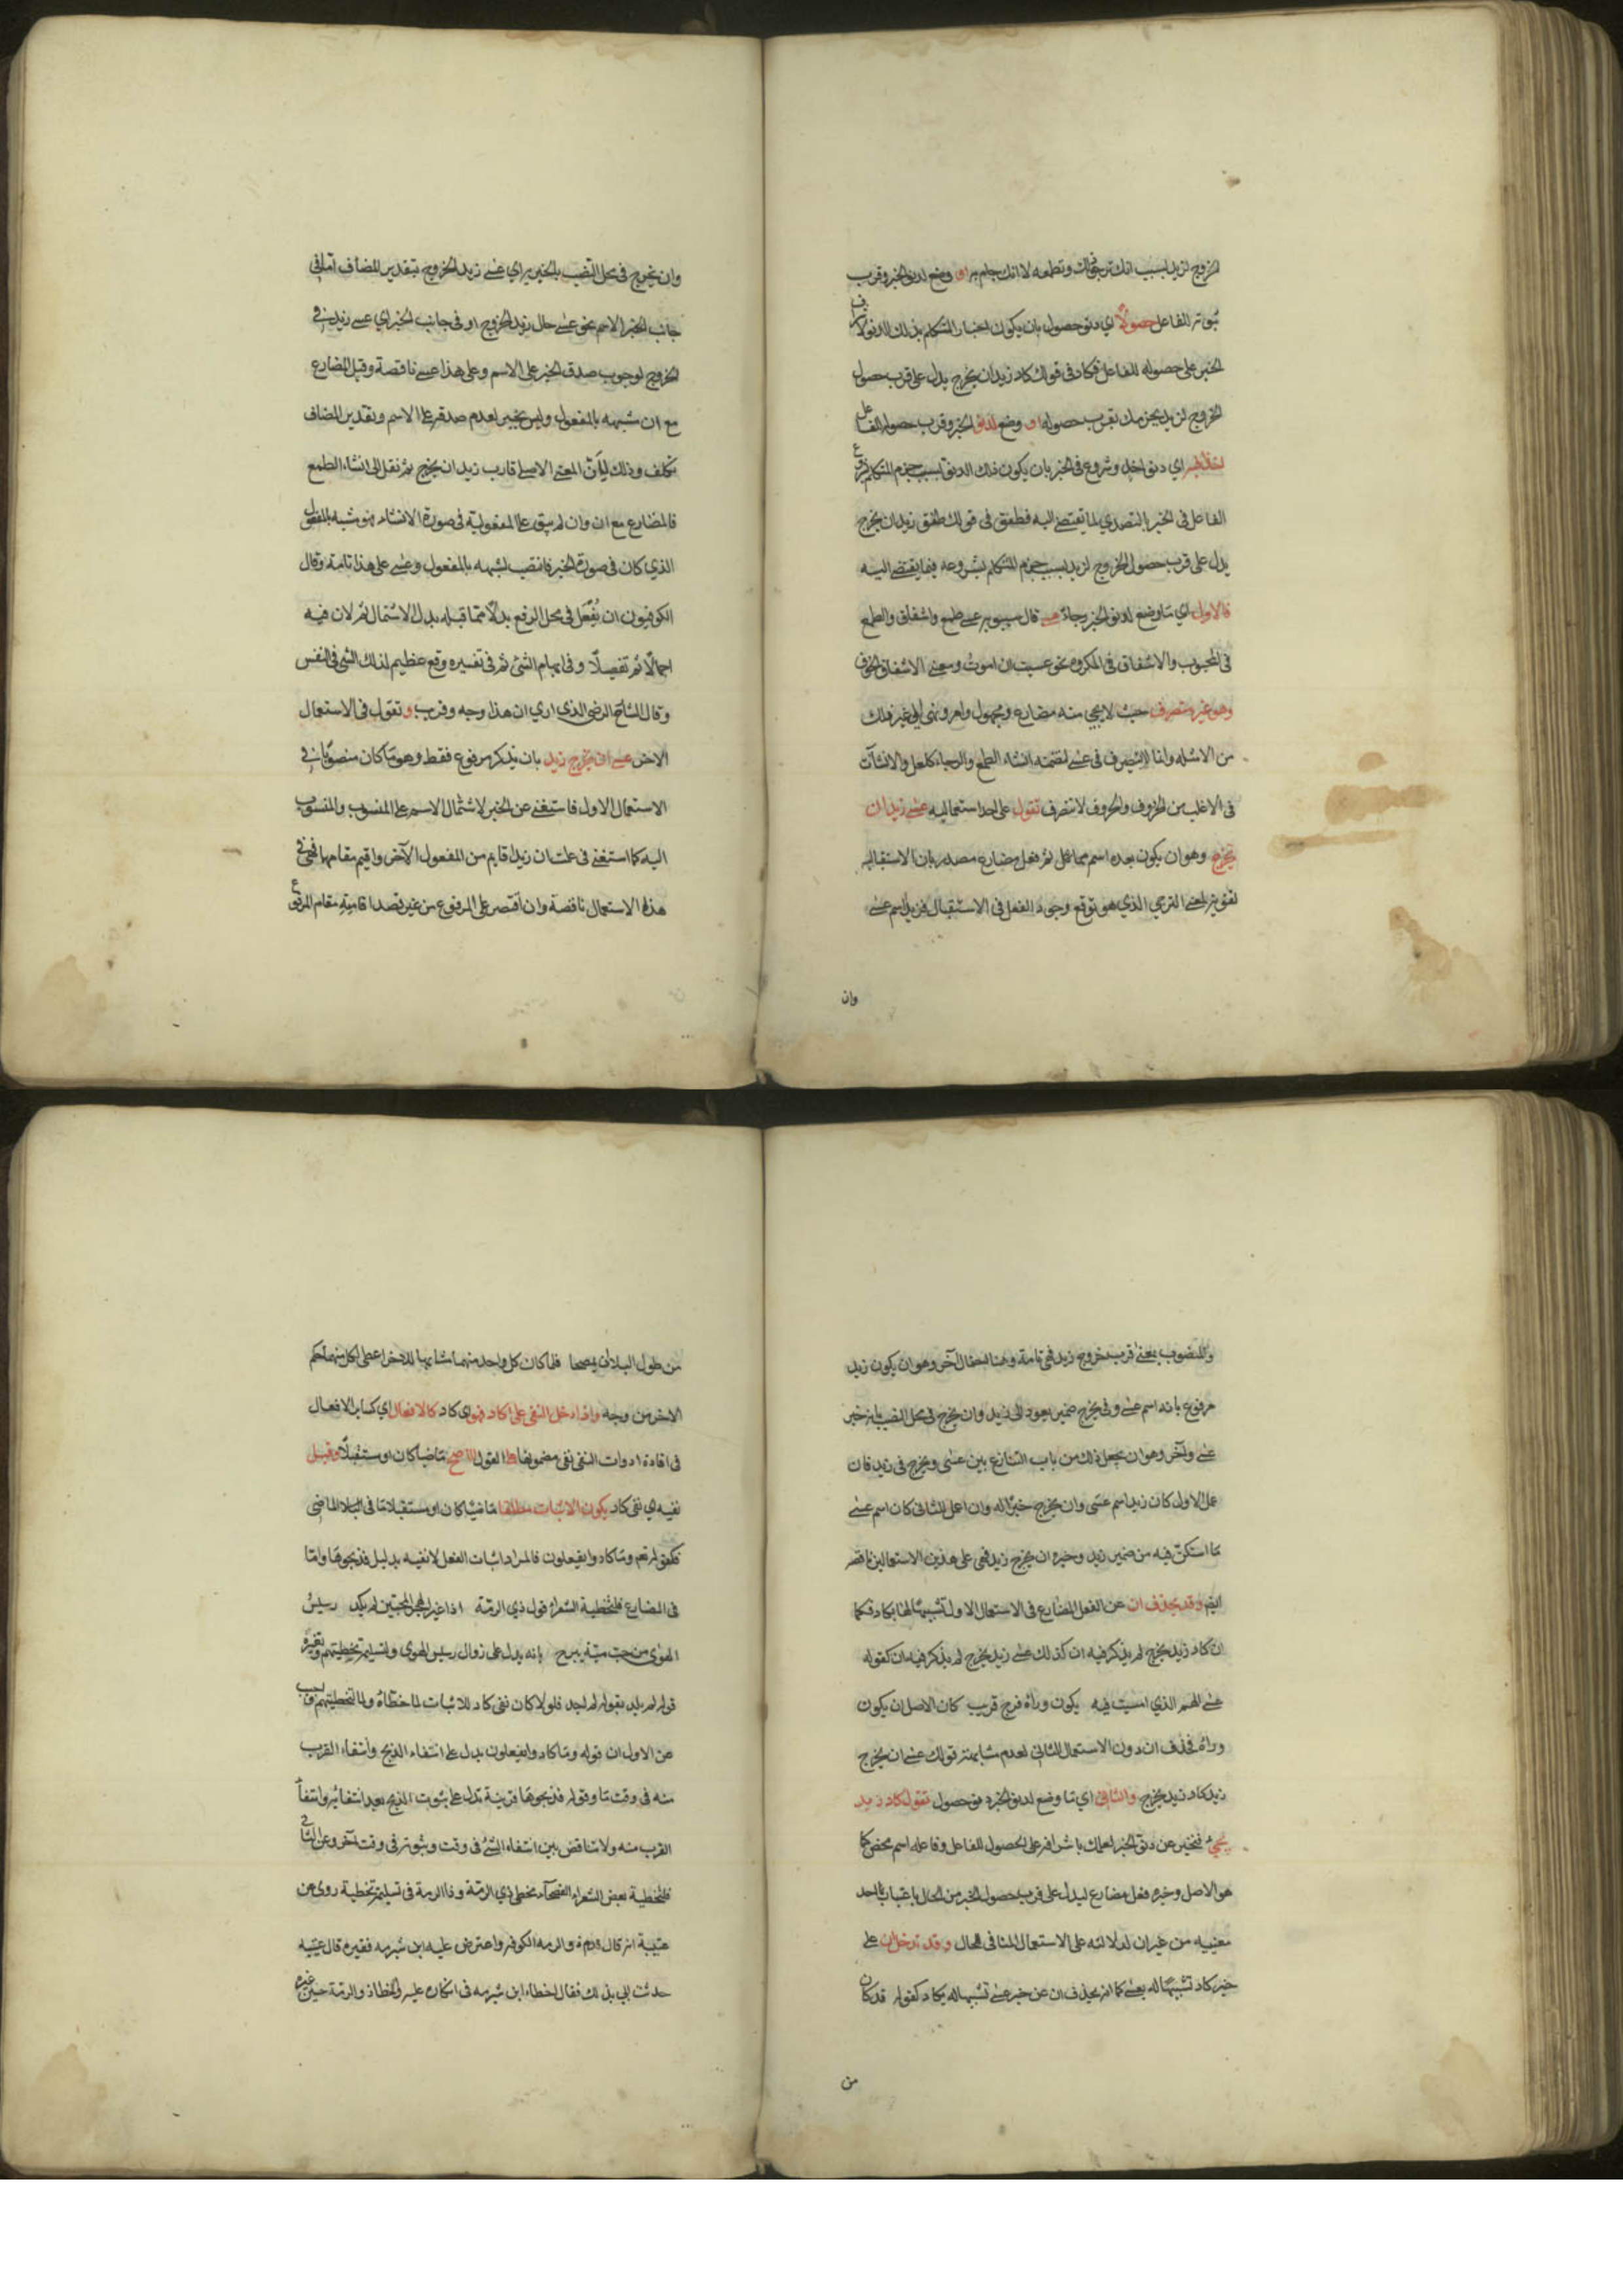 الخروج لزيد بسبب انك ترجو ذلك وتطمعه لا انك جازم به او وضع لدنو الخبر وقرب
ثبوته للفاعل حصولا اي دنو حصول بان يكون اخبار المتكلم بذلك الدنو لاشراف
الخبر على حصوله للفاعل فكاد في قولك كاد زيد ان يخرج يدل على قرب حصول
الخروج لزيد بجزمك بقرب حصوله او وضع لدنو الخبر وقرب حصوله للفاعل
اخذا فيه اي دنو اخذ وشروع في الخبر بان يكون ذلك الدنو بسبب جزم المتكلم بشروع
الفاعل في الخبر بالتصدي لما يقتضى اليه فطفق في قولك طفق زيد ان يخرج
يدل على قرب حصول الخروج لزيد بسبب جزم المتكلم بشروعه فيما يفضى اليه
فالاول اي ما وضع لدنو الخبر رجاء عسى قال سيبويه عسى طمع واشفاق والطمع
في المحبوب والاشفاق في المكروه نحو عسيت ان اموت ومعنى الاشفاق الخوف
وهو غير متصرف حيث لا يجيء منه مضارع ومجهول وامر ونهى الى غير ذلك
من الامثله وانما لم يتصرف في عسى لتضمنه انشاء الطمع والرجاء كلعل والانشاآت
في الاغلب من الحروف والحروف لا تتصرف تقول على احد استعماليه عسى زيد ان
يخرج وهو ان يكون بعده اسم مما عمل ثم فعل مضارع مصدر بان الاستقباليه
لتقوية لمعنى الترجي الذي هو توقع وجود الفعل في الاستقبال فزيد اسم عسى
وان
وان يخرج في محل النصب بالخبرية اي عسى زيد الخروج بتقدير المضاف اما في
جانب الخبر الاسم نحو عسى حال زيد الخروج او في جانب الخبر اي عسى زيد ذي
الخروج لوجوب صدق الخبر على الاسم وعلى هذا عسى ناقصة وقيل المضارع
مع ان مشبه بالمفعول وليس بخبر لعدم صدقه على الاسم وتقدير المضاف
تكلف وذلك لان المعنى الاصلي قارب زيد ان يخرج ثم نقل الى انشاء الطمع
فالمضارع مع ان وان لم يبق على المفعولية في صورة الانشاء فهو مشبه بالمفعول
الذي كان في صورة الخبر فانتصب لشبهه بالمفعول وعسى على هذا تامة وقال
الكوفيون ان يفعل في محل الرفع بدلا مما قبله بدل الاشتمال ثم لان فيه
اجمالا ثم تفصيلا وفي ابهام الشئ ثم في تفسيره وقع عظيم لذلك الشئ في النفس
وقال الشارح الرضى الذي ارى ان هذا وجه وقريب وتقول في الاستعمال
الاخر عسى ان يخرج زيد بان يذكر مرفوع فقط وهو ما كان منصوبا في
الاستعمال الاول فاستغنى عن الخبر لاشتمال الاسم على المنسوب والمنسوب
اليه كما استغنى في علمت ان زيدا قايم من المفعول الآخر واقيم مقامها فهي في
هذا الاستعمال ناقصة وان اقتصر على المرفوع من غير قصد اقامته مقام المرفوع
والمنصوب بمعنى قرب خروج زيد فهي تامة وهنا احتمال آخر وهو ان يكون زيد
مرفوع بانه اسم عسى وفي يخرج ضمير يعود الى زيد وان يخرج في محل النصب بانه خبر
عسى وآخر وهو ان يجعل ذلك من باب التنازع بين عسى ويخرج في زيد فان
عمل الاول كان زيد اسم عسى وان يخرج خبرا له وان اعمل الثاني كان اسم عسى
ما استكن فيه من ضمير زيد وخبره ان يخرج زيد فهي على هذين الاستعمالين ناقصه
ايضا وقد يحذف ان عن الفعل المضارع في الاستعمال الاول تشبيها لها بكاد فكما
ان كاد زيد يخرج لم يذكر فيه ان كذلك عسى زيد يخرج لم يذكر فيه ان كقوله
عسى الهم الذي امسيت فيه يكون وراءه فرج قريب كان الاصل ان يكون
وراءه فحذف ان دون الاستعمال الثاني لعدم مشابهة قولك عسى ان يخرج
زيد كاد زيد يخرج والثاني اي ما وضع لدنو الخبر دنو حصول تقول كاد زيد
يجيء فتخبر عن دنو الخبر لعلمك باشرافه على الحصول للفاعل وفاعله اسم محض كما
هو الاصل وخبره فعل مضارع ليدل على قرب حصول الخبر من الحال باعتبار احد
معنييه من غير ان لدلالته على الاستعمال المنافي للحال وقد تدخل ان على
خبر كاد تشبيها له بعسى كما انه يحذف ان عن خبر عسى تشبيها له بكاد كقوله قد كان
من
من طول البلا ان يمصحا فلما كان كل واحد منهما مشابها للاخر اعطى لكل منهما حكم
الاخر من وجه واذا دخل النفى على كاد فهو اي كاد كالافعال اي كساير الافعال
في افادة ادوات النفى نفى مضمونها على القول الاصح ماضيا كان او مستقبلا وقيل
نفيه اي نفى كاد يكون الاثبات مطلقا ماضيا كان او مستقبلا اما في الماضى
فكقوله تعم وما كادوا يفعلون فالمراد اثبات الفعل لا نفيه بدليل فذبحوها واما
في المضارع فلتخطية الشعراء قول ذي الرمة اذا غير الهجر المحبين لم يكد رسيس
الهوى من حب مية يبرح بانه يدل على زوال رسيس الهوى ولتسليمه تخطيتهم وتغييره
قوله لم يكد بقوله لم اجد فلولا كان نفى كاد للاثبات لما خطاؤه ولما لتخطيتهم واجيب
عن الاول ان قوله وما كادوا يفعلون يدل على انتفاء الذبح وانتفاء القرب
منه في وقت ما وقوله فذبحوها قرينة تدل على ثبوت الذبح بعد انتفائه وانتفا
القرب منه ولا تناقض بين انتفاء الشئ في وقت وثبوته في وقت آخر وعن الثاني
فلتخطية بعض الشعراء الفصحآء مخطى ذي الرمة وذا الرمة في تسليمه تخطية روى عن
عتيبة انه قال قدم ذو الرمه الكوفة واعترض عليه ابن شبرمه فغيره قال عتيبه
حدثت ابي بذلك فقال اخطاء ابن شبرمه في انكاره عليه واخطا ذو الرمة حين غيره